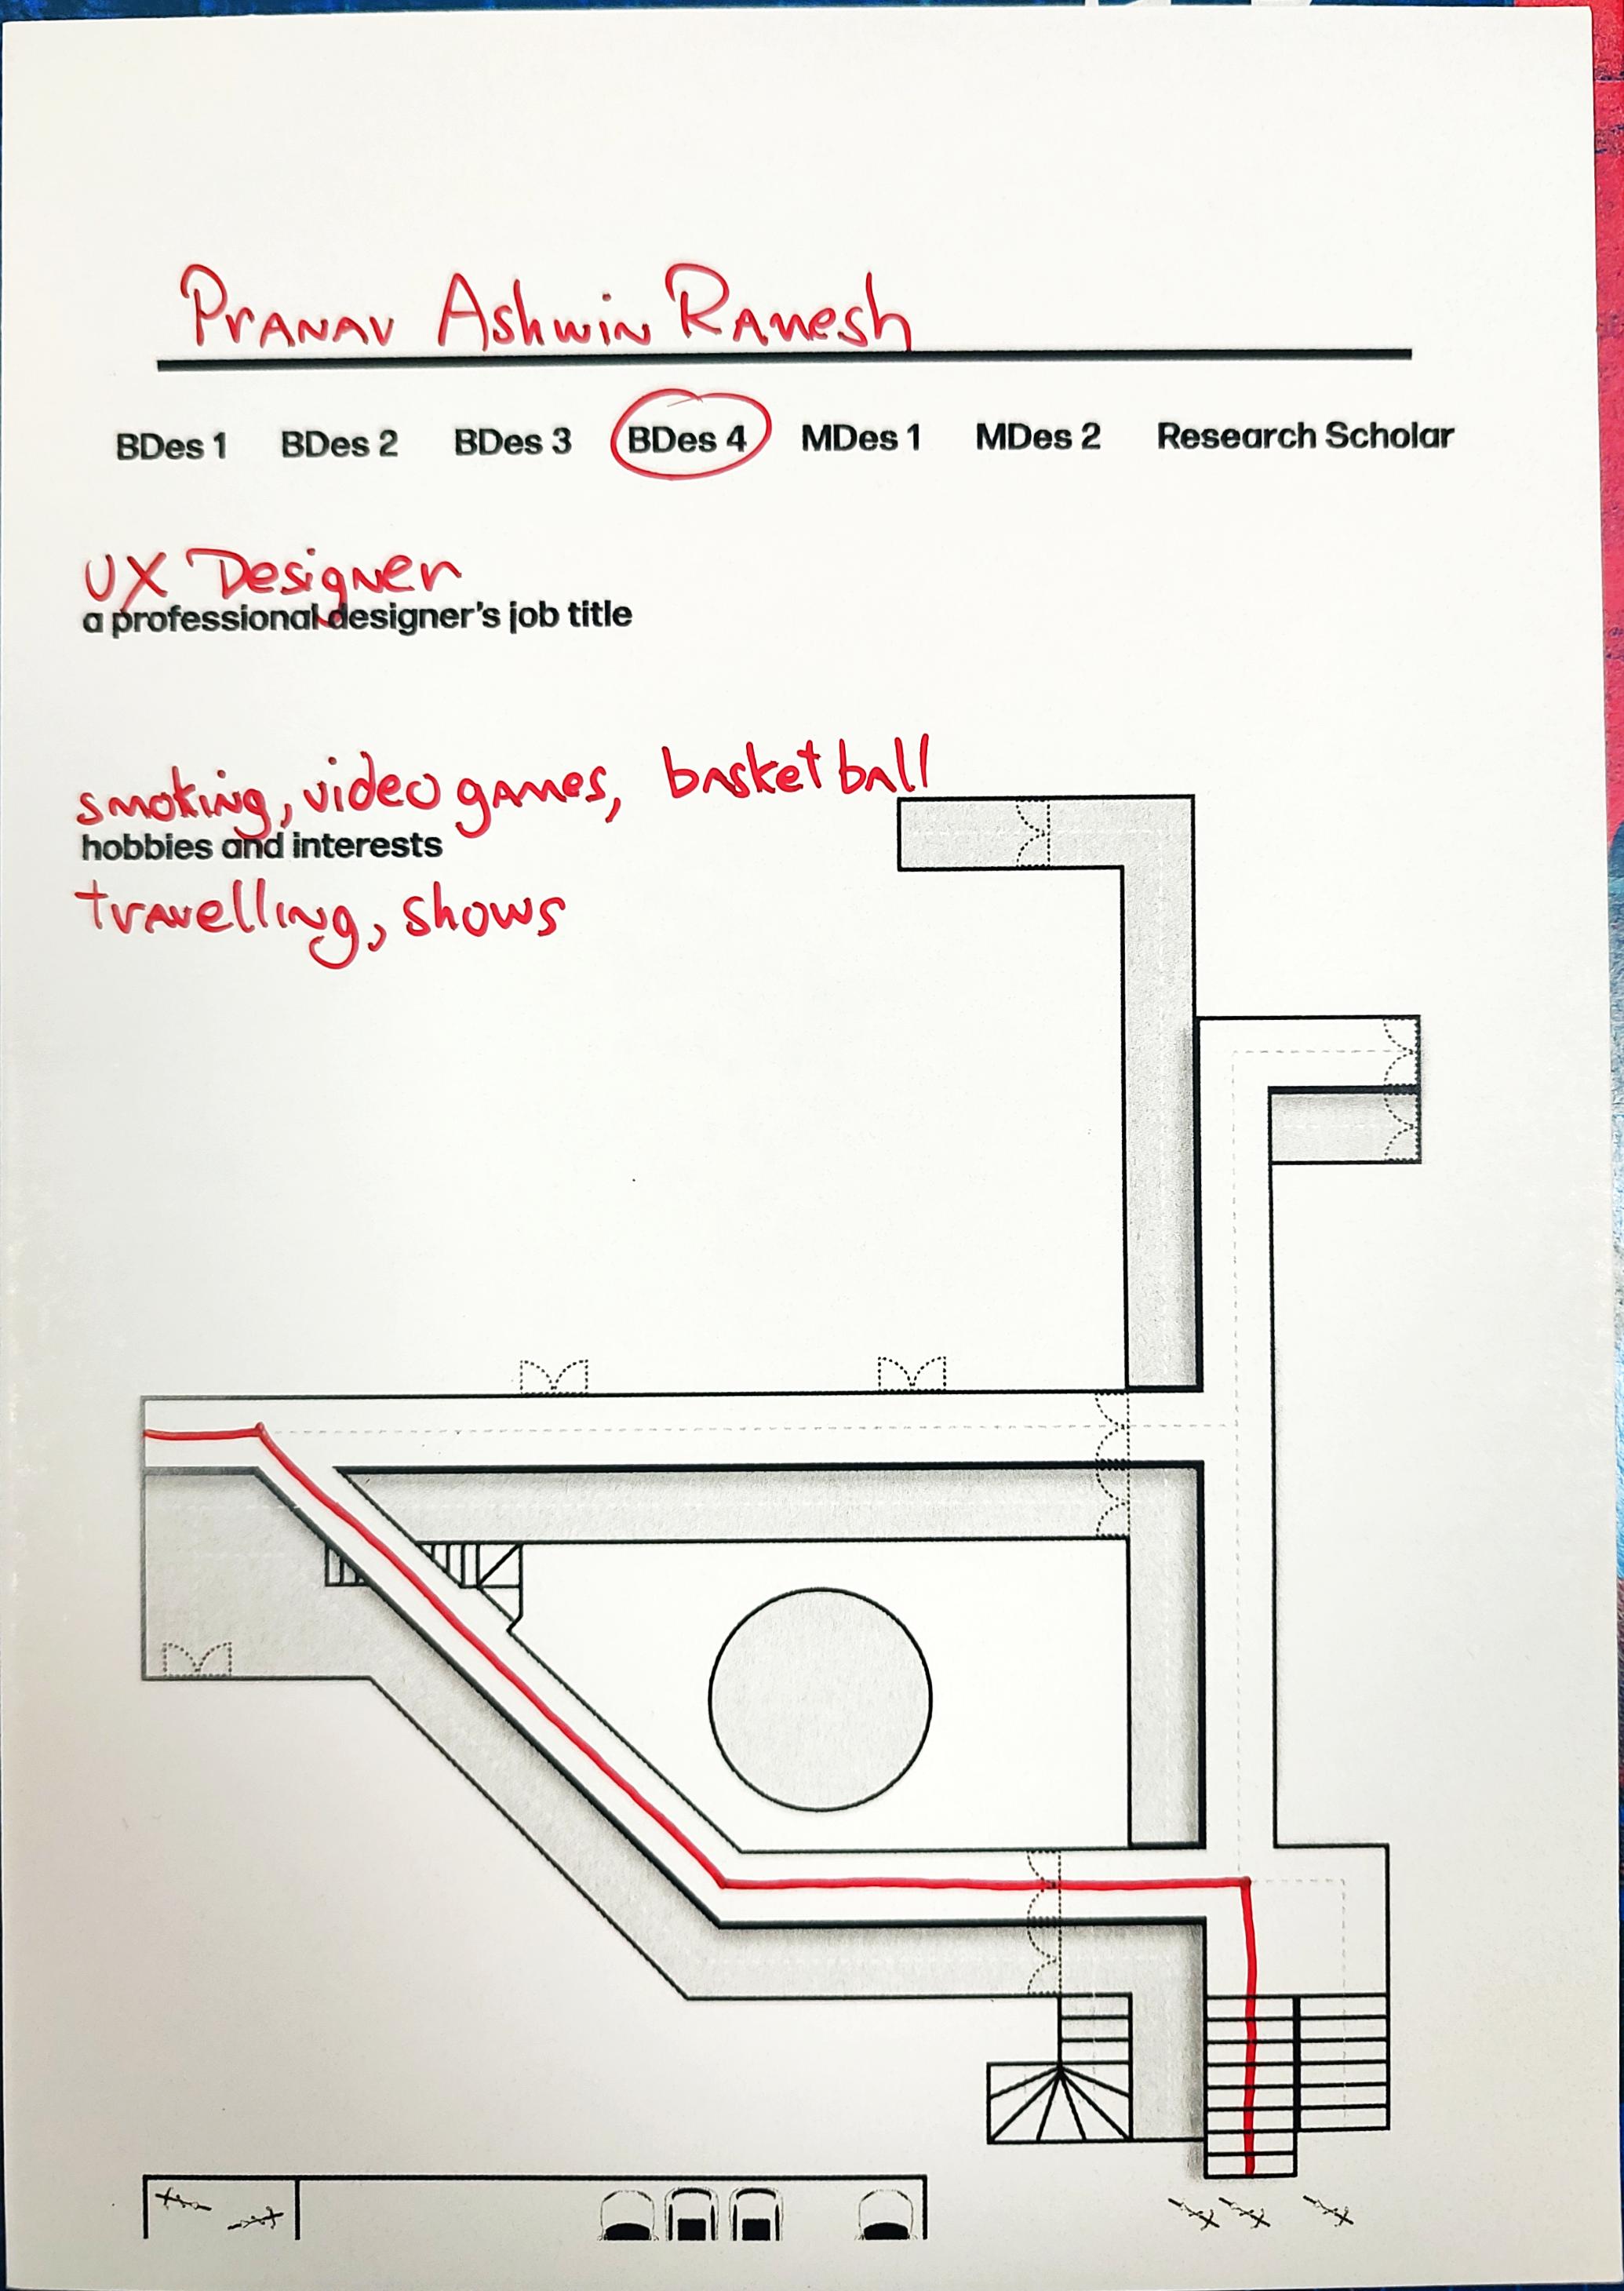 Pranav Ashwin Ramesh
BDes 1 BDes 2 BDes 3 BDes 4 MDes 1 MDes 2 Research Scholar
UX Designer
a professional designer's job title
smoking, video games, basketball
hobbies and interests
travelling, shows